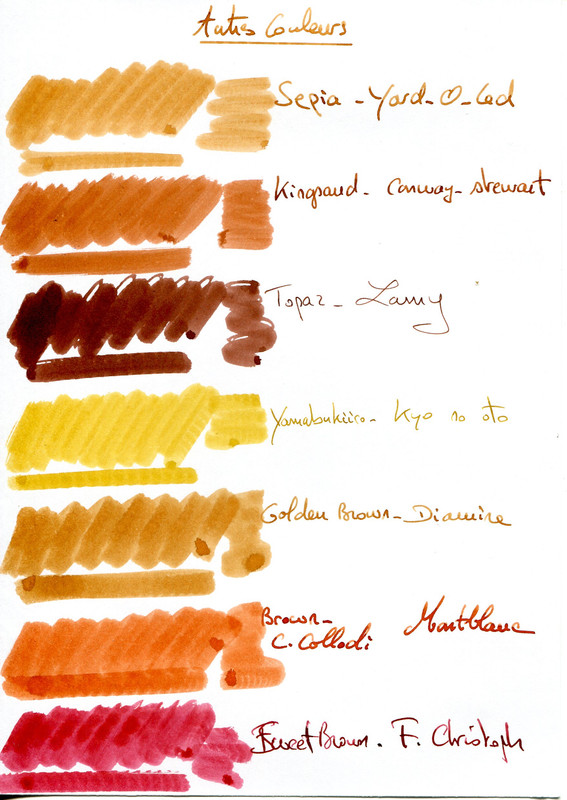 Autres Couleurs
Sepia - Yard-O-Led
Kingsand - Conway-stewart
Topaz - Lamy
Yamabukiiro - Kyo no oto
Golden Brown - Diamine
Brown - Montblanc
C. Collodi
Sweet Brown. F. Christoph